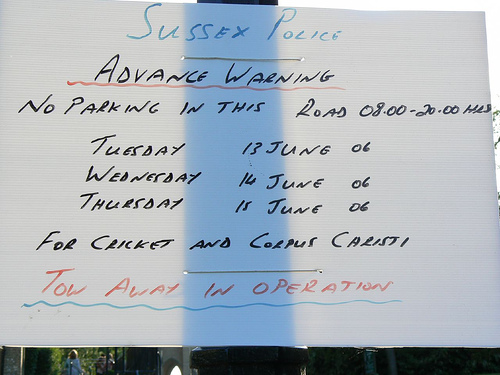 SUSSEX POLICE
ADVANCE WARNING
NO PARKING IN THIS ROAD 08.00-20.00 HRS
TUESDAY 13 JUNE 06
WEDNESDAY 14 JUNE 06
THURSDAY 15 JUNE 06
FOR CRICKET AND CORPUS CHRISTI
TOW AWAY IN OPERATION